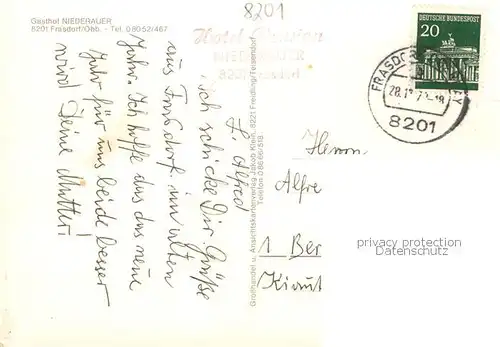 Gasthof NIEDERAUER
8201 Frasdorf/Obb. - Tel. 08052/467
8201
Hotel Pension
NIEDERAUER
8201 Frasdorf
DEUTSCHE BUNDESPOST
20
FRASDORF
28.12.7
8201
L. Alfred
ich schicke Dir Grüße
aus Frasdorf im alten
Jahr. Ich hoffe das das neue
Jahr für uns beide besser
wird Deine Mutter!
Großhandel u. Ansichtskartenverlag Jakob Klein, 8221 Freidling/Teisendorf
Telefon 08666/518
Herrn
Alfre
1 Ber
Kiaut
privacy protection
Datenschutz